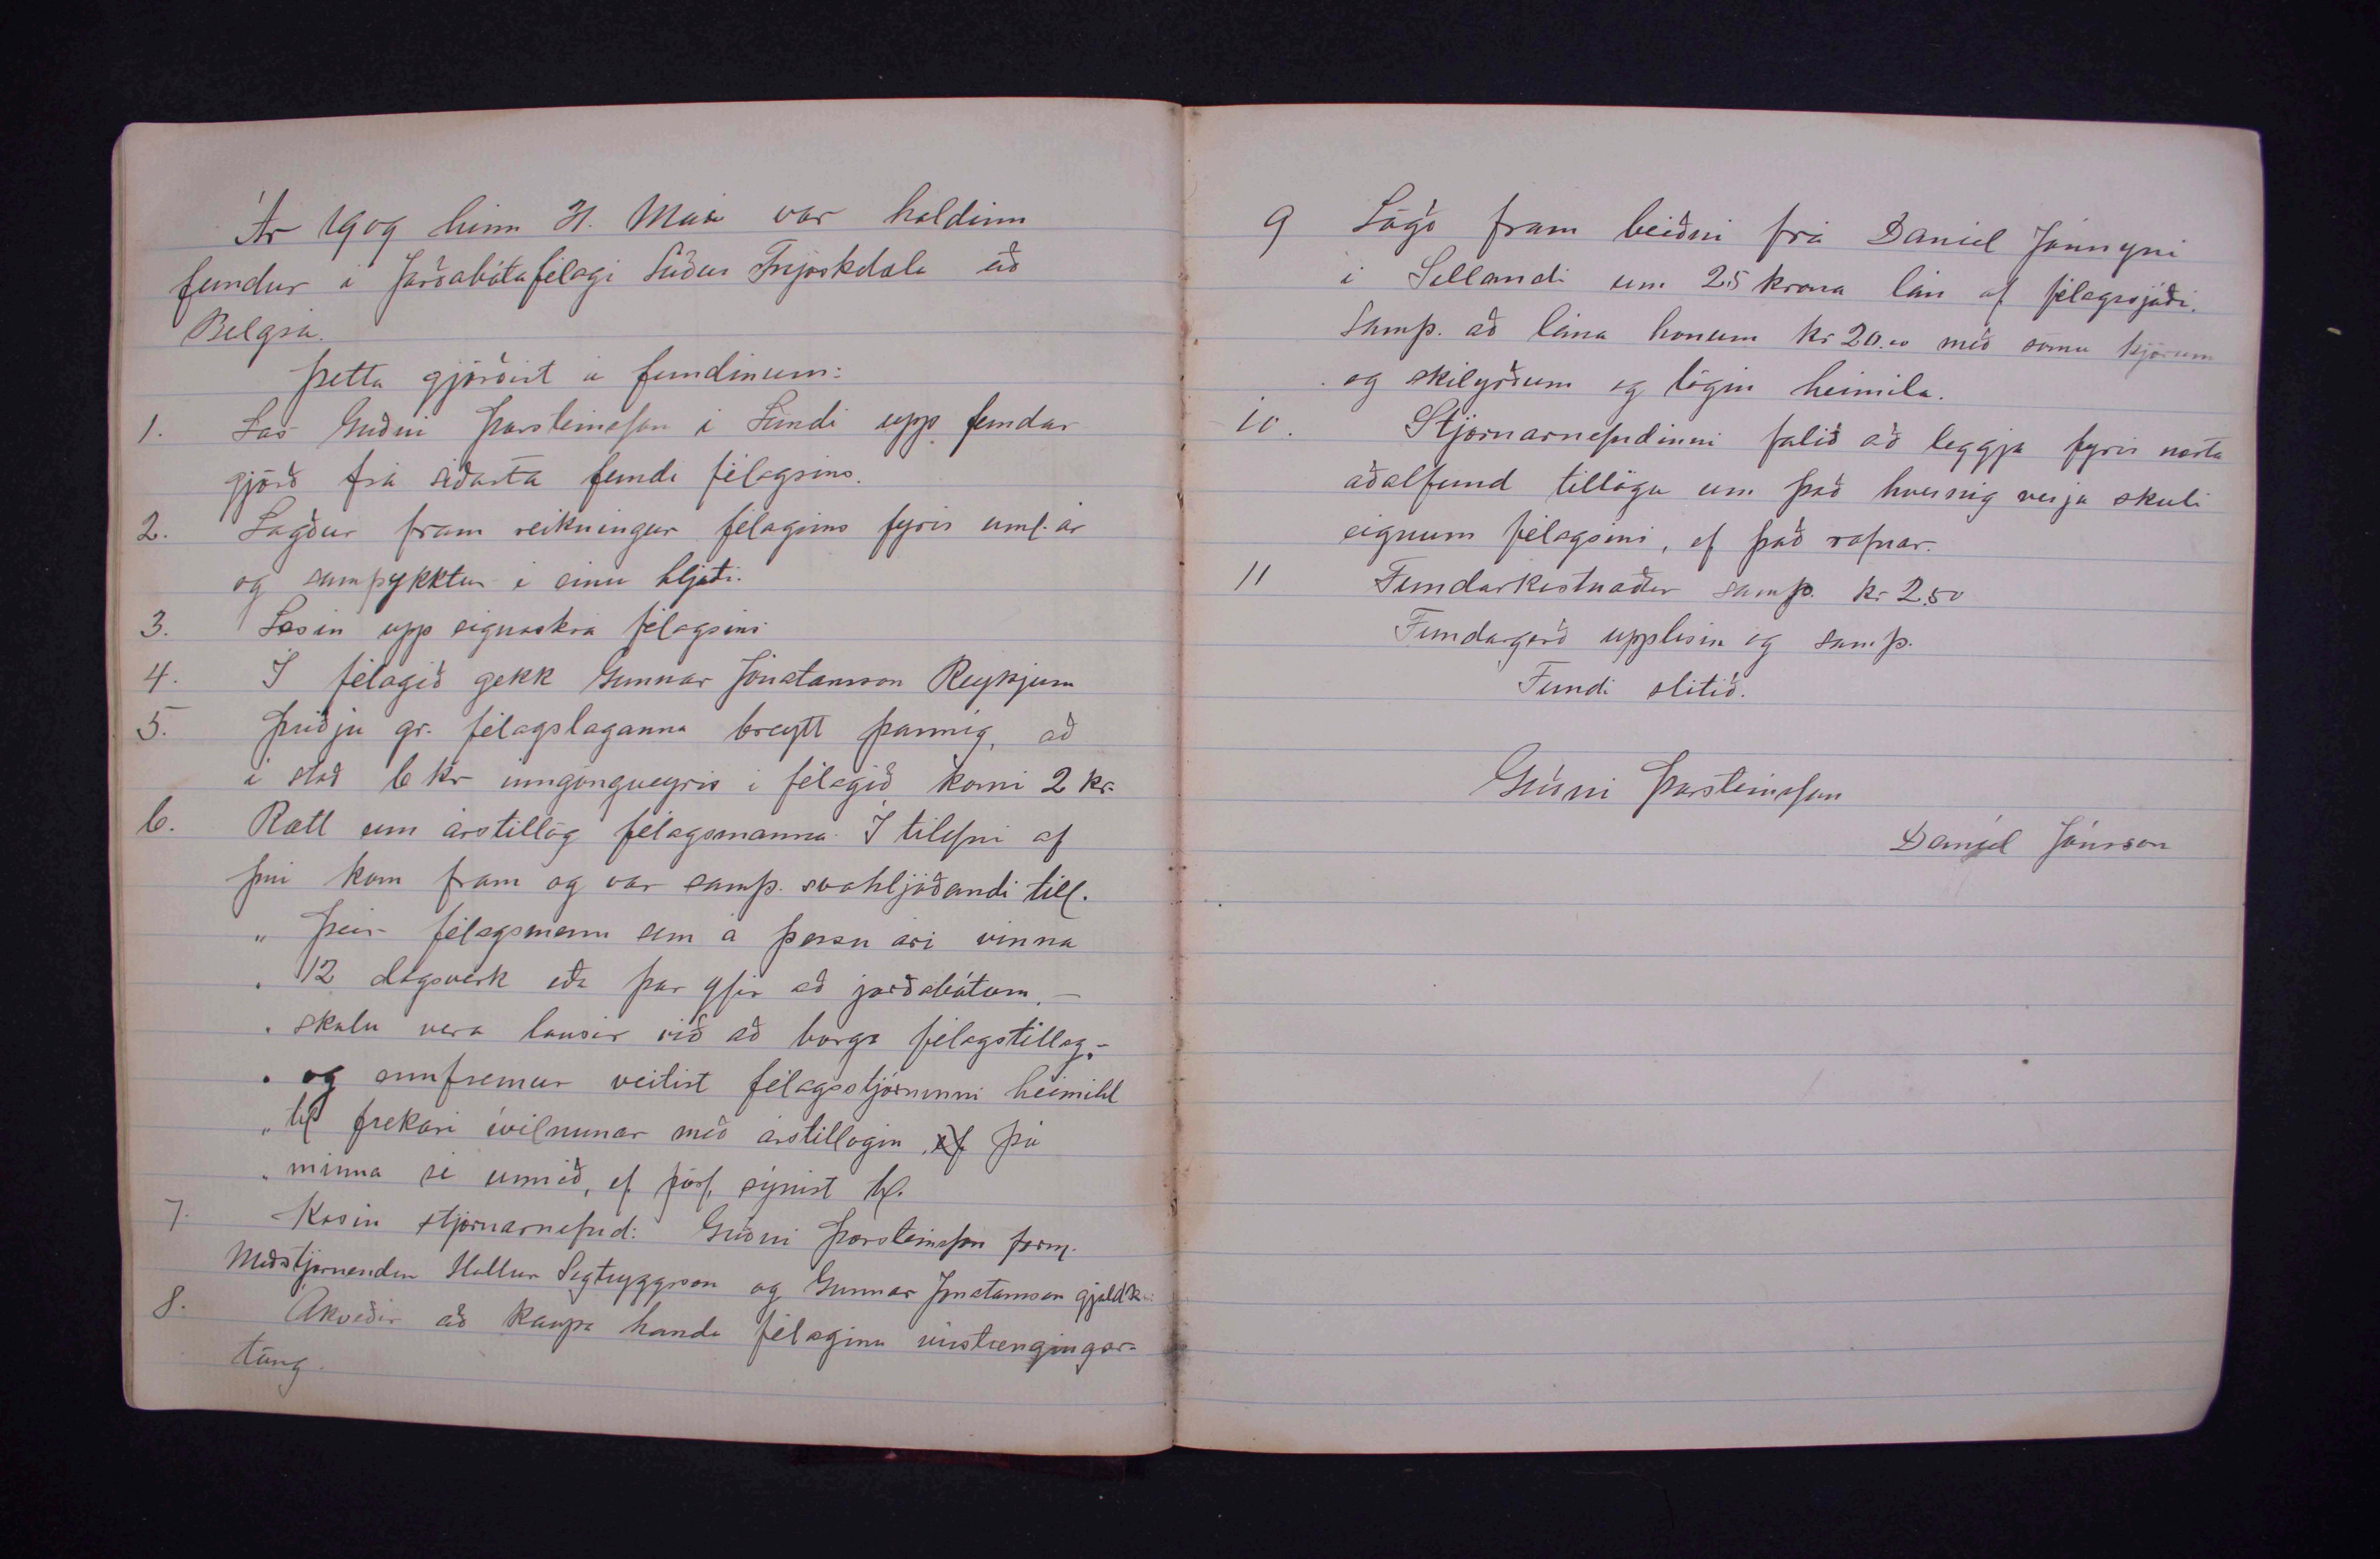 Ár 1909 hinn 31. Maí var haldinn
fundur í Jarðabótafélagi Suður Fnjóskdæla að
Belgsá.
Þetta gjörðist á fundinum:
1. Las Guðni Þorsteinsson í Lundi upp fundar
gjörð frá síðasta fundi félagsins.
2. Lagður fram reikningur félagsins fyrir uml. ár
og samþykktur í einu hljóði.
3. Lesin upp eignaskrá félagsins
4. Í félagið gekk Gunnar Jónatansson Reykjum
5. Þriðju gr. félagslaganna breytt þannig, að
í stað 6 kr inngöngueyris í félagið komi 2 kr.
6. Rætt um árstillög félagsmanna. Í tilefni af
því kom fram og var samþ. svohljóðandi till.
„ Þeir félagsmenn sem á þessu ári vinna
„ 12 dagsverk eða þar yfir að jarðabótum, -
„ skulu vera lausir við að borga félagstillag, -
„ og ennfremur veitist félagsstjórninni heimild
„ til frekari ívilnunar með árstillögin, ef þó
„ minna sé unnið, ef þörf sýnist til.
7. Kosin stjórnarnefnd: Guðni Þorsteinsson form.
Meðstjórnendur Hallur Sigtryggsson og Gunnar Jónatansson gjaldk.
8. Ákveðið að kaupa handa félaginu vírstrengingar-
töng.
9 Lögð fram beiðni frá Daníel Jónssyni
í Sellandi um 25 króna lán af félagssjóði.
Samþ. að lána honum kr 20.00 með sömu kjörum
og skilyrðum og lögin heimila.
10. Stjórnarnefndinni falið að leggja fyrir næsta
aðalfund tillögu um það hvernig verja skuli
eignum félagsins, ef það rofnar.
11 Fundarkostnaður samþ. kr 2.50
Fundargerð upplesin og samþ.
Fundi slitið.
Guðni Þorsteinsson
Daníel Jónsson